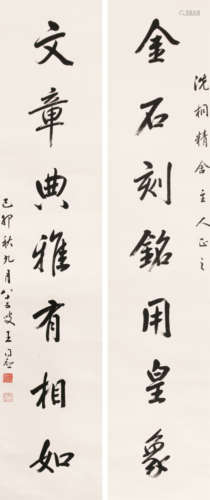 洗桐精舍主人正之
金石刻銘用皇象
文章典雅有相如
己卯秋九月八十叟王